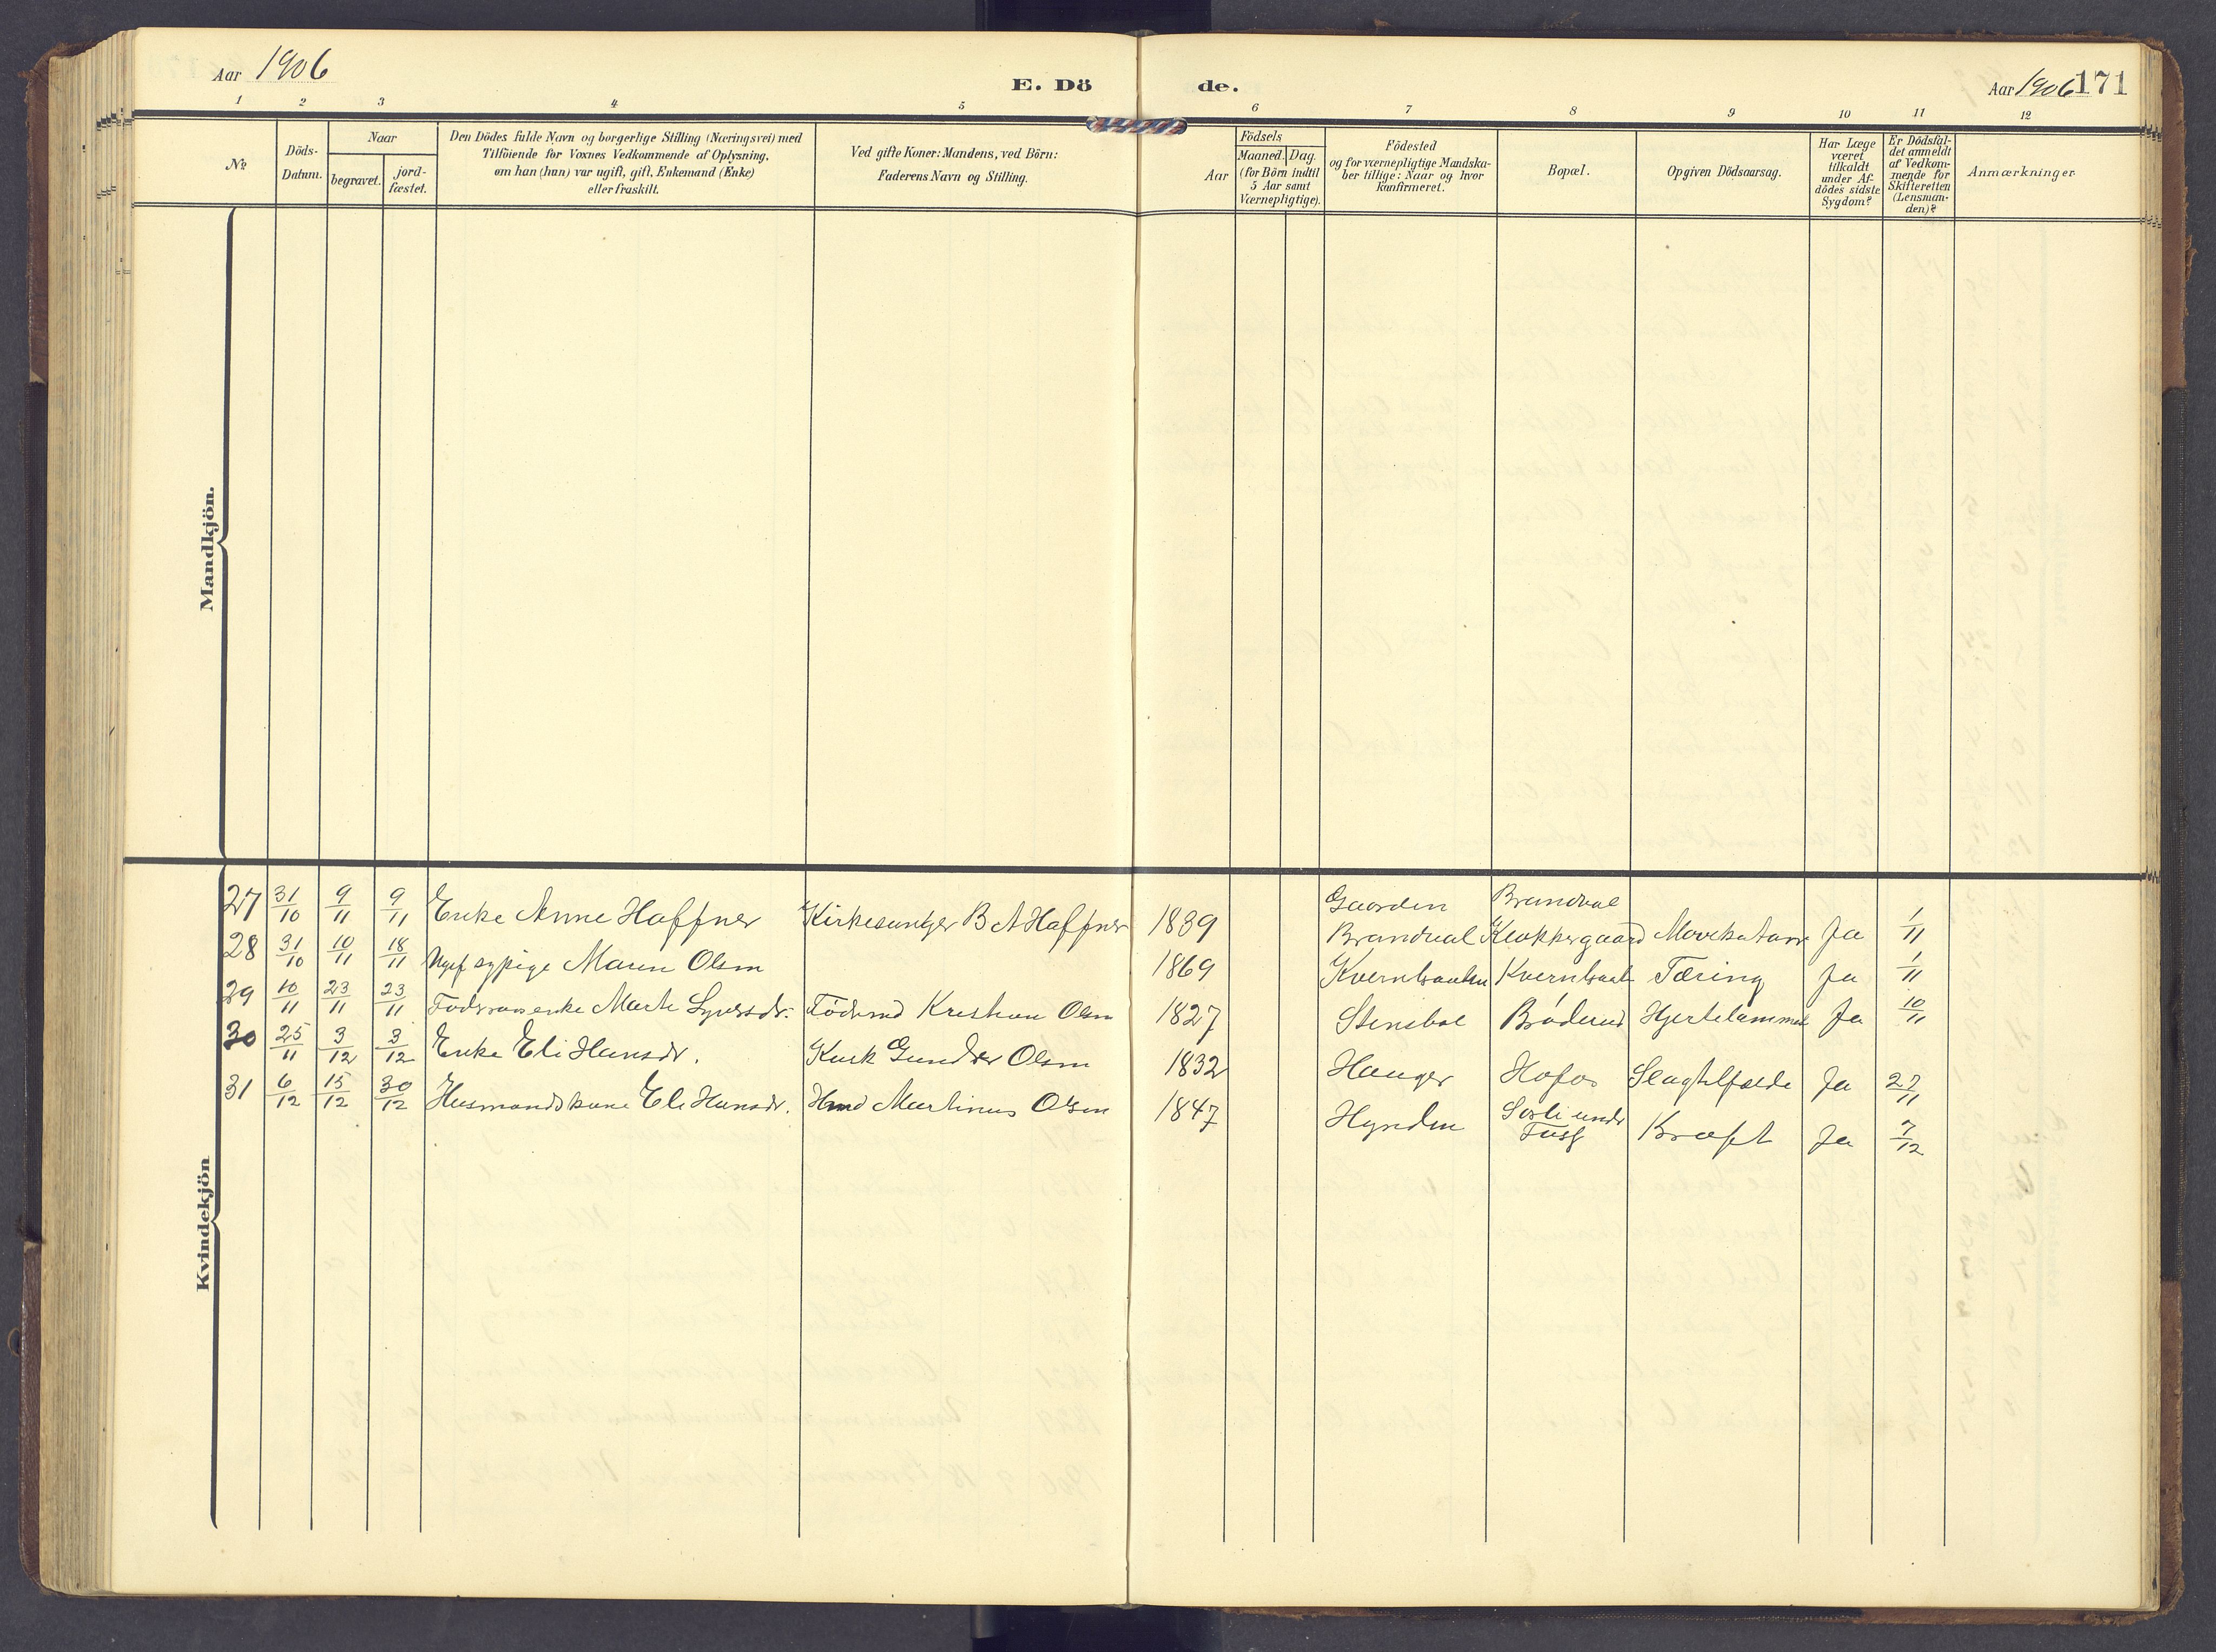 Aar 1906
E. Dö de.
Aar 1906 171
1 2 3 4 5 6 7 8 9 10 11 12
No.
Döds-
Datum.
Naar
begravet.
jord-
fæstet.
Den Dödes fulde Navn og borgerlige Stilling (Næringsvei) med
Tilföiende for Voxnes Vedkommende af Oplysning,
om han (hun) var ugift, gift, Enkemand (Enke)
eller fraskilt.
Ved gifte Koner: Mandens, ved Börn:
Faderens Navn og Stilling.
Aar
Födsels
Maaned. Dag.
(for Börn indtil
5 Aar samt
Værnepligtige).
Födested
og for værnepligtige Mandska-
ber tillige: Naar og hvor
konfirmeret.
Bopæl.
Opgiven Dödsaarsag.
Har Læge
været
tilkaldt
under Af-
dödes sidste
Sygdom?
Er Dödsfal-
det anmeldt
af Vedkom-
mende for
Skifteretten
(Lensman-
den)?
Anmærkninger
Mandkjön.
Kvindekjön
27 31/10 9/11 9/11 Enke Anne Haffner Kirkesanger B A Haffner 1839 Gaarden Brandval Brandval Klokkergaard Ja 1/11
28 31/10 10/11 18/11 Ugift sypige Maren Olsen 1869 Tæring Ja 1/11
29 10/11 23/11 23/11 Marte Föderaad Kristian Olsen 1827 Brøderud Ja 10/11
30 25/11 3/12 3/12 Enke Eli Hansdr. Gunder Olsen 1832 Hauger Hofos Slagtilfælde Ja 27/11
31 6/12 15/12 30/12 Husmandskone Eli Hansdr. Hmd Martinus Olsen 1847 Kræft Ja 7/12